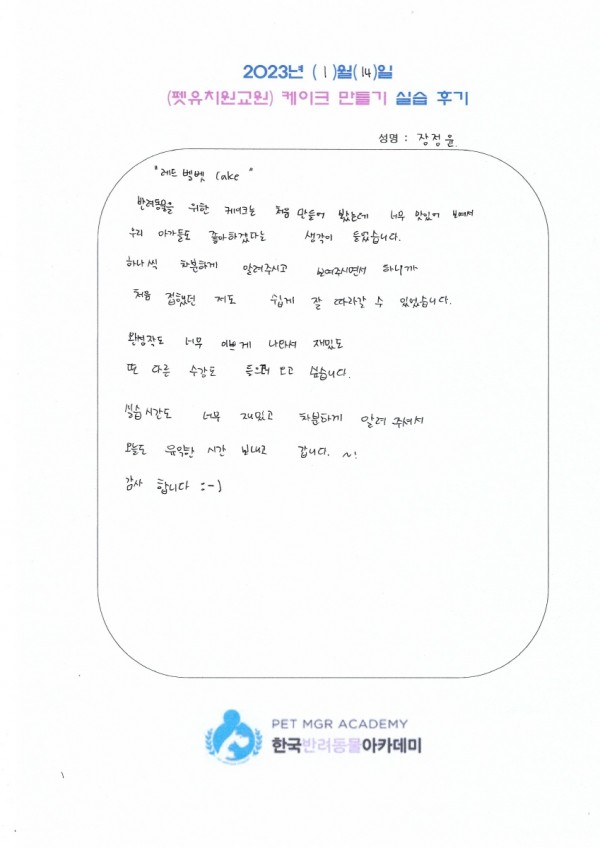 2023년 ( 1 )월( 14 )일
(펫유치원교원) 케이크 만들기 실습 후기
성명 : 장정윤
"레드벨벳 Cake "
반려동물을 위한 케이크는 처음 만들어 봤는데 너무 맛있어 보여서
우리 아가들도 좋아하겠다는 생각이 들었습니다.
하나씩 차분하게 알려주시고 보여주시면서 하니까
처음 접했던 저도 쉽게 잘 따라갈 수 있었습니다.
완성작도 너무 이쁘게 나와서 재밌도
또 다른 수강도 들으러 오고 싶습니다.
실습시간도 너무 재밌고 차분하게 알려 주셔서
오늘도 유익한 시간 보내고 갑니다. ~!
감사 합니다 :-)
PET MGR ACADEMY
한국반려동물아카데미